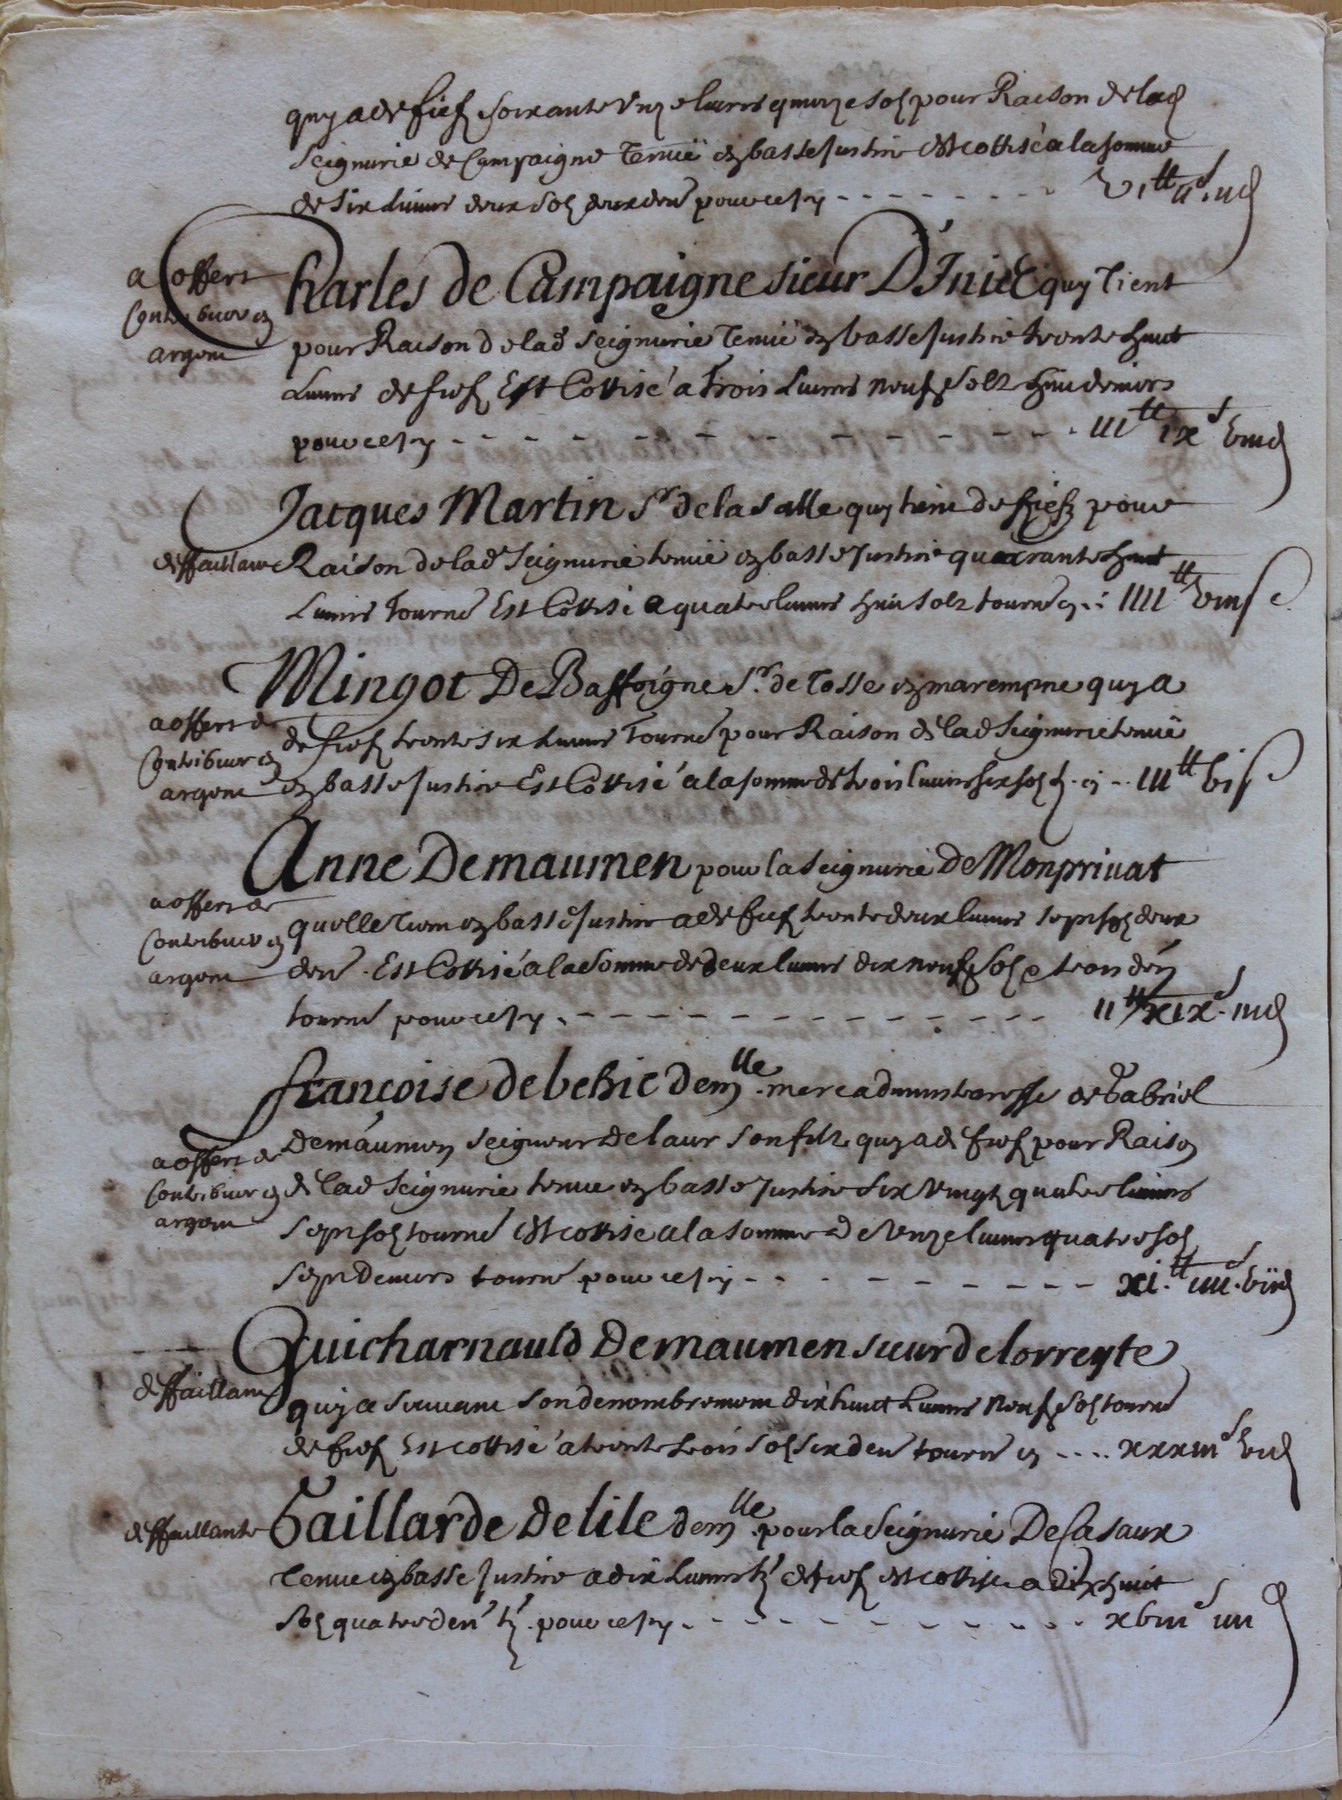 quy a de fief soixante unze livres quinze solz pour Raison de lad
seigneurie de Campaigne Tenuë en basse Justice est cottisé a la somme
de six Livres deux solz deux den pour cecy - - - - - - - VI tt II s. II d
a offert
Contribuer en
argent
Charles de Campaigne sieur D'Inice quy Tient
pour Raison de lad seigneurie Tenuë en basse Justice trente huict
Livres de fief Est Cottisé a Trois Livres neuf solz huict deniers
pour cecy - - - - - - - - - - - III tt IX s VIII d
Jacques Martin Sr de la Salle quy tient de fief pour
deffaillant
Raison de lad seigneurie tenuë en basse Justice quarante huict
Livres Tourns Est Cottisé a quatre livres huict solz tourns cy .. IIII tt VIII s
Mingot De Baffoigne Sr. de Tosse en marempne quy a
a offert de
Contribuer en
argent
de fief trente six Livres Tourns pour Raison de lad seigneurie tenuë
en basse Justice Est Cottisé a la somme de trois livres six solz tz. cy .. III tt VI s
Anne Demaumen pour la seigneurie De Monprivat
a offert de
Contribuer en
argent
quelle Tient en basse Justice a de fief trente deux livres sept solz deux
den . Est Cottisé a la somme de deux livres dix neuf solz trois den
tourns pour cecy - - - - - - - - - - - - II tt XIX s III d
françoise de behic dem lle mere administraresse de Gabriel
a offert de
Contribuer en
argent
Demaumen seigneur Delaur son filz quy a de fief pour Raison
de lad seigneurie tenue en basse Justice six vingtz quatre livres
sept solz tourns est cottisé a la somme De unze livres quatre solz
sept Deniers tourns pour cecy - - - - - - - - XI tt IIII s. VII d
Guicharnauld Demaumen sieur de lorreyte
deffaillant
quy a suivant son denombrement dix huict Livres neuf solz tourns
de fief Est cottisé a trente trois solz six den tourns cy .... XXXIII s VI d
deffaillante
Gaillarde Delile dem lle pour la seigneurie De Casaux
Tenue en basse Justice a dix Livres tz de fief est cottisée a Dix huict
solz quatre den tz. pour cecy - - - - - - - - - XVIII s IIII d